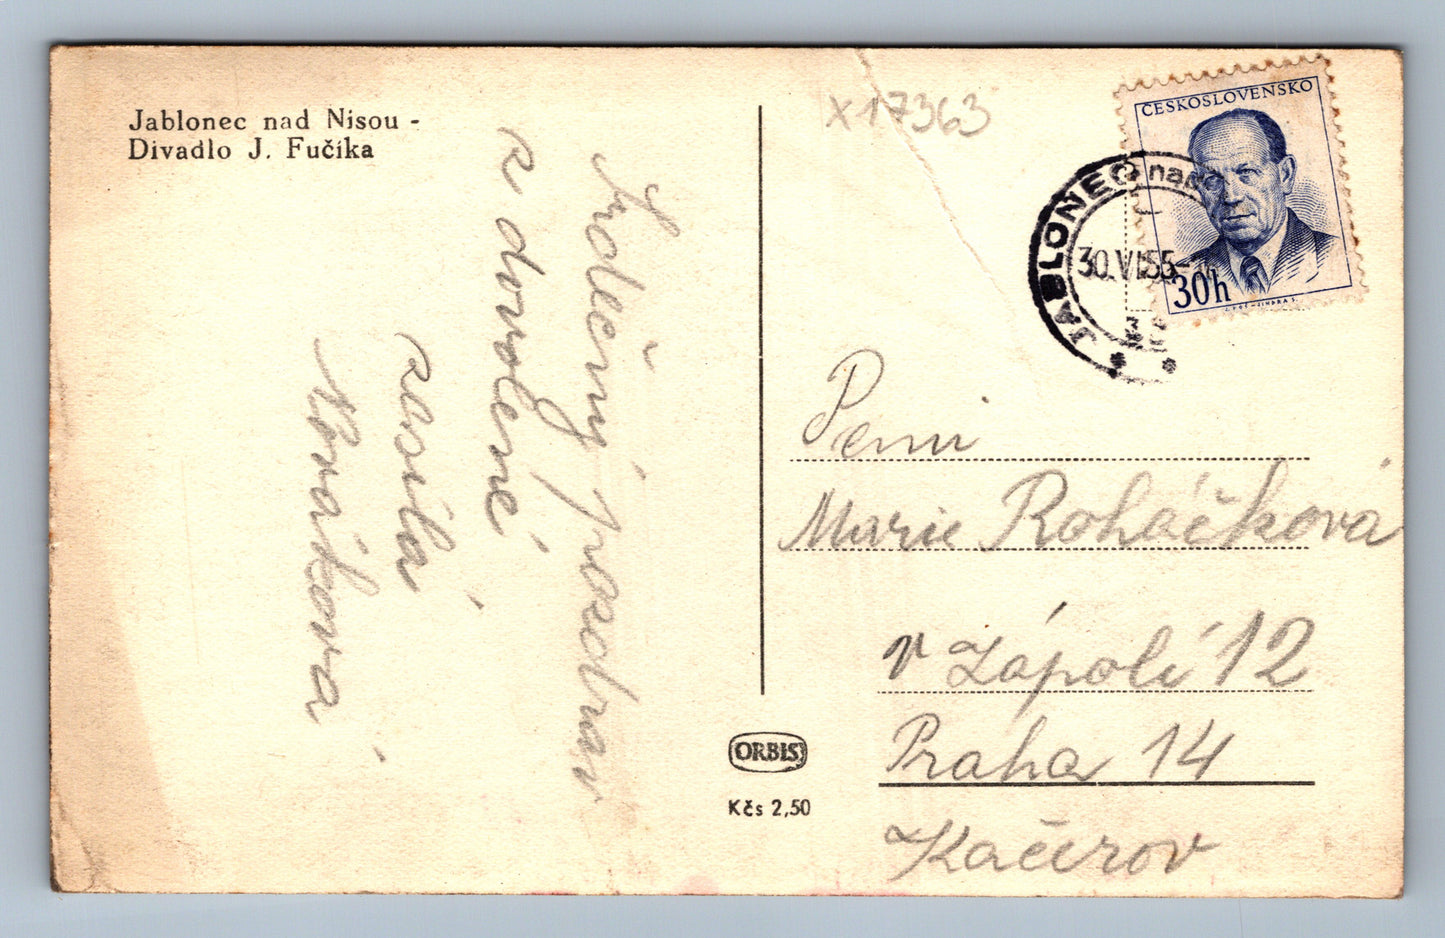 Jablonec nad Nisou -
Divadlo J. Fučíka
Srdečný pozdrav
z dovolené
zasílá
Nováková
X17363
ČESKOSLOVENSKO
30h
JABLONEC nad
30.VI.55-
Pení
Marie Roháčková
v Zápolí 12
Praha 14
Kačerov
ORBIS
Kčs 2,50